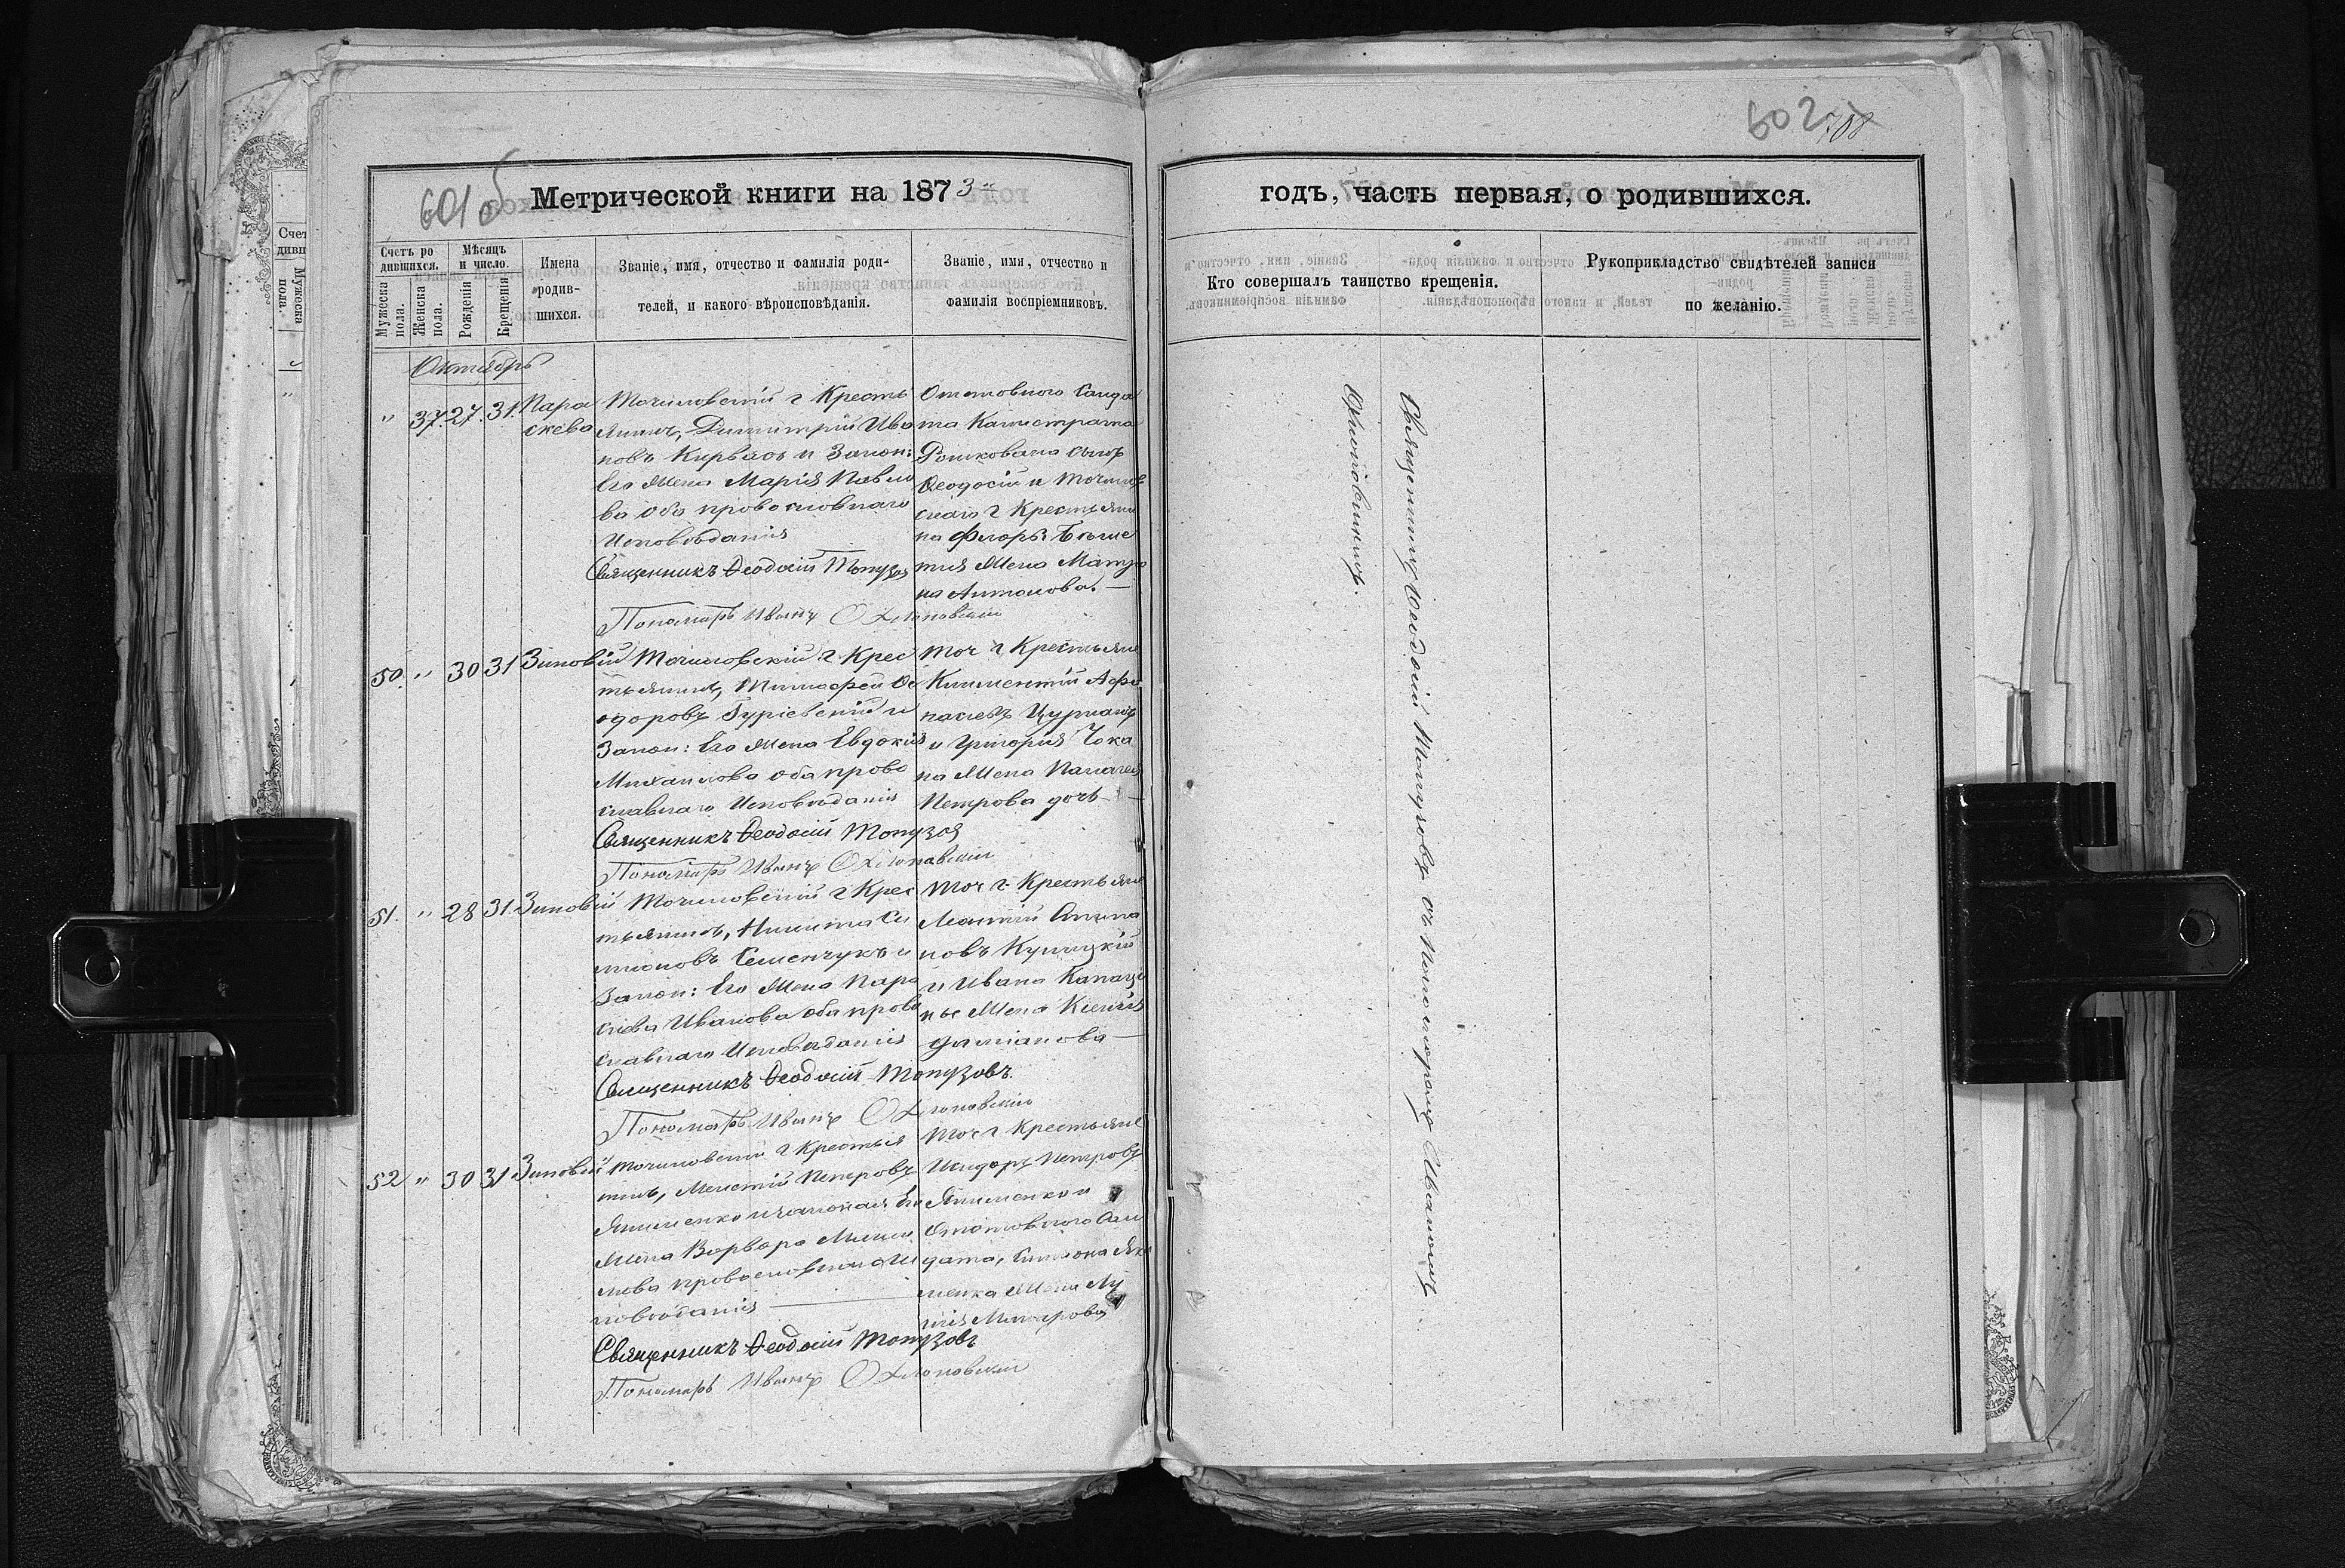 601 об
Метрической книги на 1873й
Счетъ ро
дившихся.
Мужеска
пола.
Женска
пола.
Мѣсяцъ
и число.
Рожденія
Крещенія
Имена
родив-
шихся.
Званіе, имя, отчество и фамилія роди-
телей, и какого вѣроисповѣданія.
Званіе, имя, отчество и
фамилія воспріемниковъ.
Октябрь
" 37. 27. 31.
Пара
скева
крестья
янинъ, Димитрій Ива
новъ Кирвасъ и Закон:
Его жена Марія Павло
ва оба православнаго
Исповѣданія
Священникъ Ѳеодосій Топузов
Пономаръ Иванъ
Отставного Солда
та Калистрата
сынъ
Ѳеодосій и
скаго г Крестьяни
на
тія жена Матро
на Антонова. —
50. " 30 31 Зиновій
г Крес
тьянинъ, Тимофей Ѳе
одоровъ Гуріевскій и
Закон: Его жена Евдокія
Михаилова оба право
славнаго Исповѣданія
Священникъ Ѳеодосій Топузов
Пономаръ Иванъ
Точ г Крестьяне
Климентій Афа
насіевъ Цурканъ
и Григорія Чока
на жена Панагея
Петрова дочь —
51. " 28 31. Зиновій
г Крес
тьянинъ, Никита Си
мионовъ Семенчукъ и
Закон: Его жена Пара
скева Иванова оба право
славнаго Исповѣданія
Священникъ Ѳеодосій Топузовъ.
Пономаръ Иванъ
Точ г. Крестьяне
Леонтій
новъ
и Ивана
ны жена Ксенія
Даміанова —
52 " 30 31 Зиновій
г Крестьян
инъ, Петровъ
Якименко и законая Его
жена Варвара
мова православнаго Ис
повѣданія —
Священникъ Ѳеодосій Топузовъ
Пономаръ Иванъ
Точ г Крестьяне
Исидоръ Петровъ
Якименко и
Отставного Сол
дата, Симиона Яки
менка жена Лу
кія
602 708
годъ, часть первая, о родившихся.
Кто совершалъ таинство крещенія.
Рукоприкладство свидѣтелей записи
по желанію.
Священникъ Ѳеодосій Топузовъ съ Пономаромъ Иваномъ